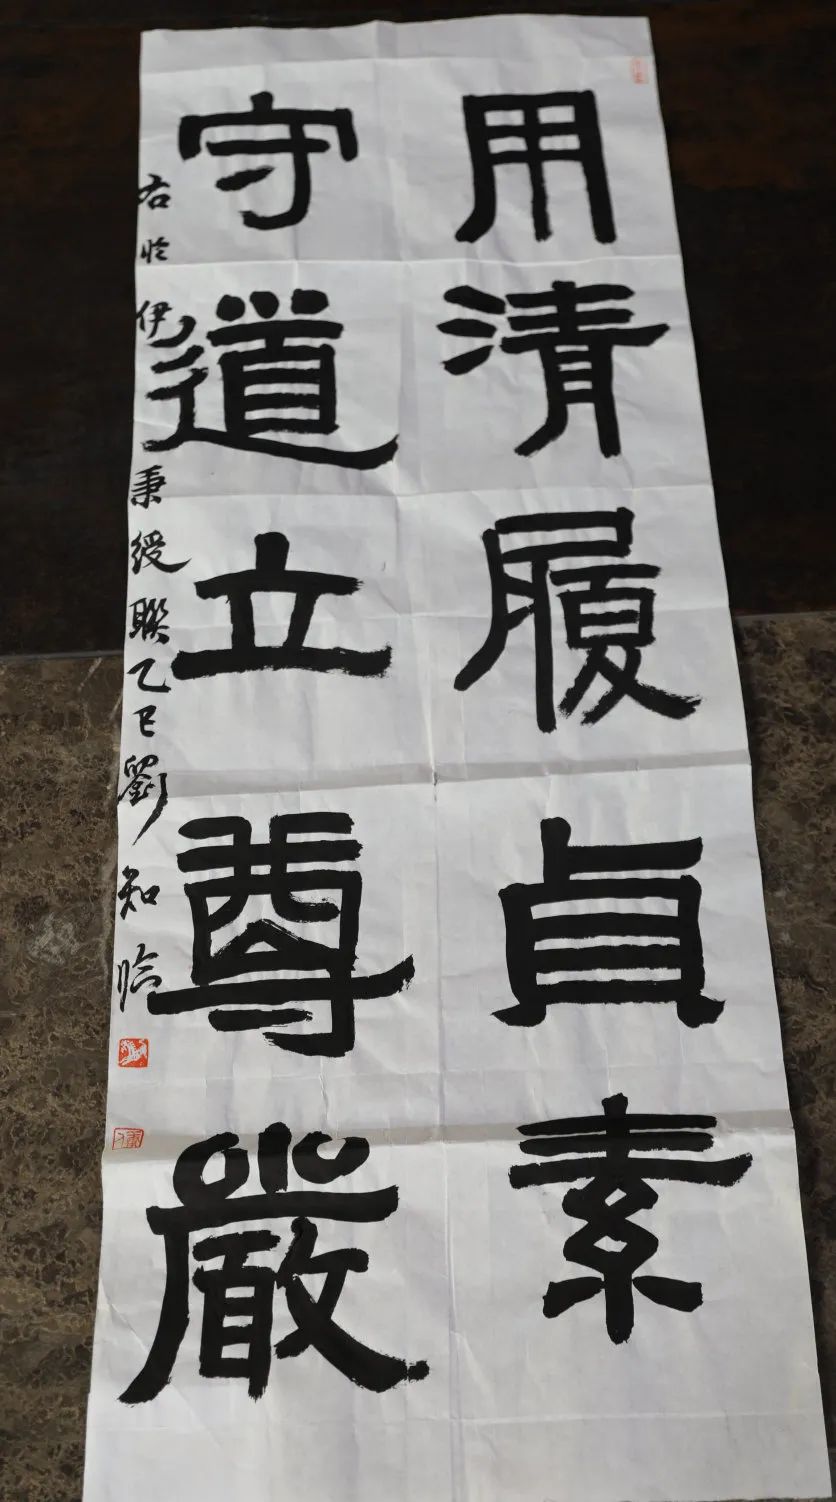 用清履貞素
守道立尊嚴
右臨伊秉綬聯乙巳劉知臨